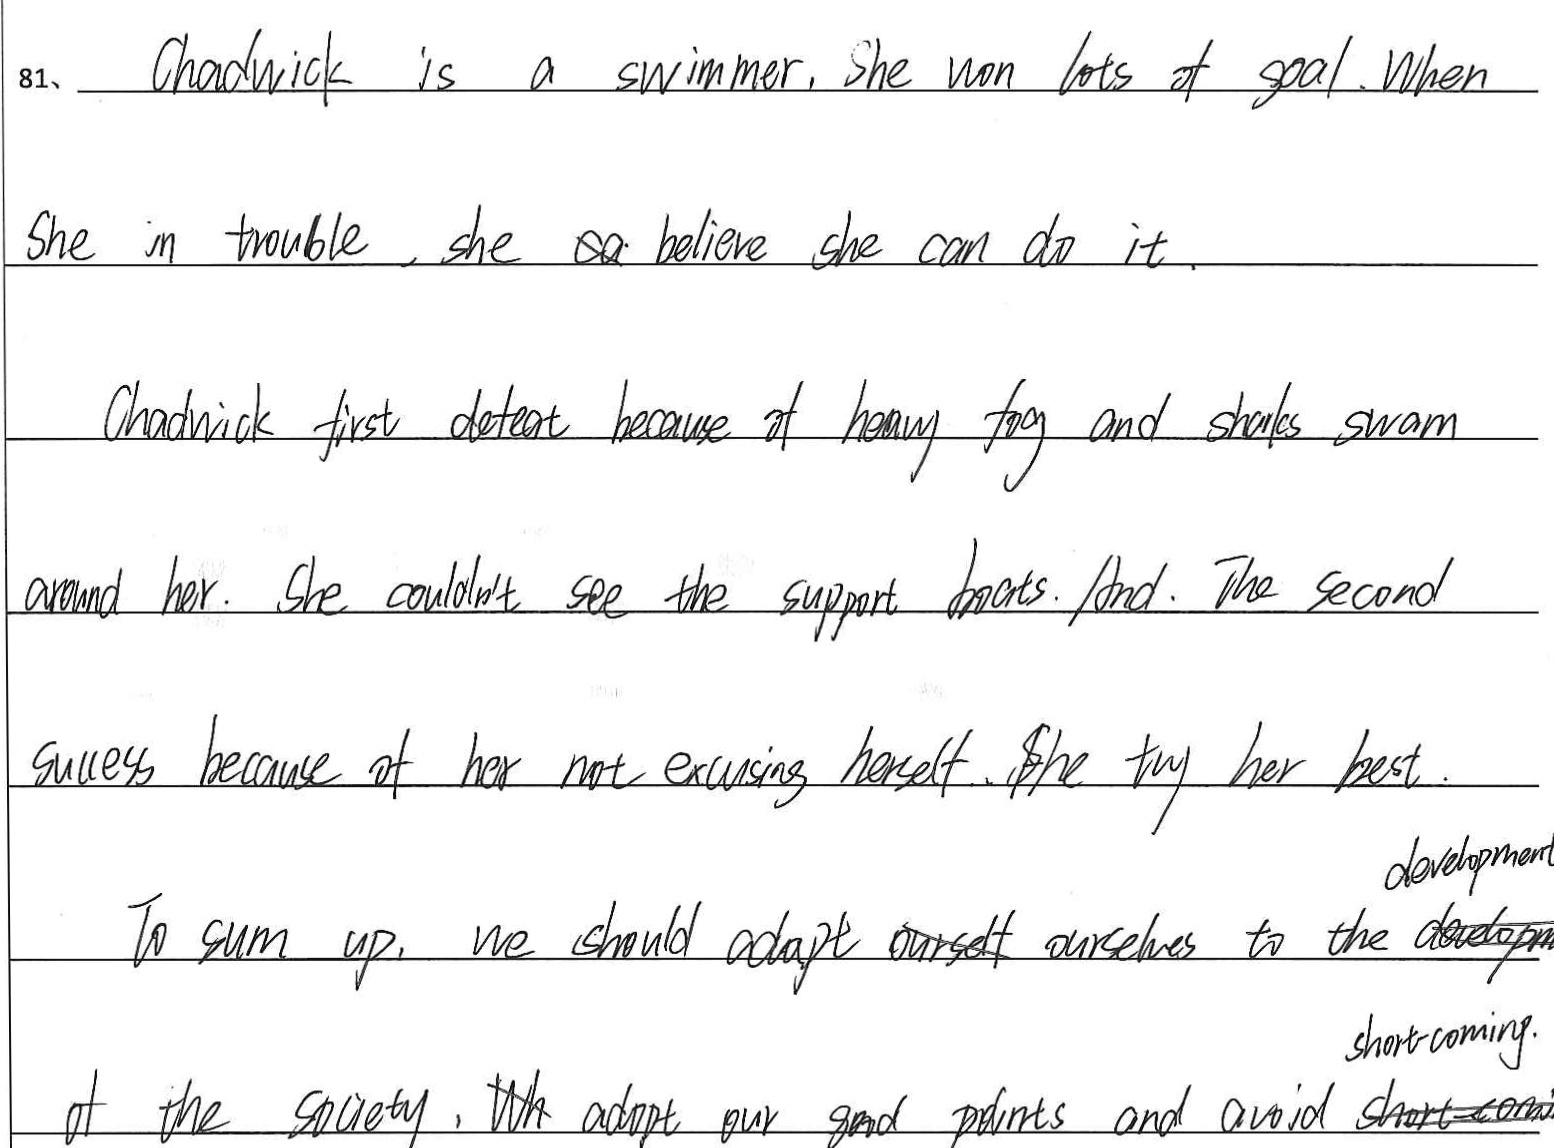 81、 Chadwick is a swimmer. She won lots of goal. When
She in trouble, she believe she can do it.
Chadwick first defeat because of heavy fog and sharks swam
around her. She couldn't see the support boats. And. The second
success because of her not excusing herself. She try her best.
development
To sum up, we should adapt ourself ourselves to the developm
short-coming.
of the society. Wh adopt our good points and avoid short-comi